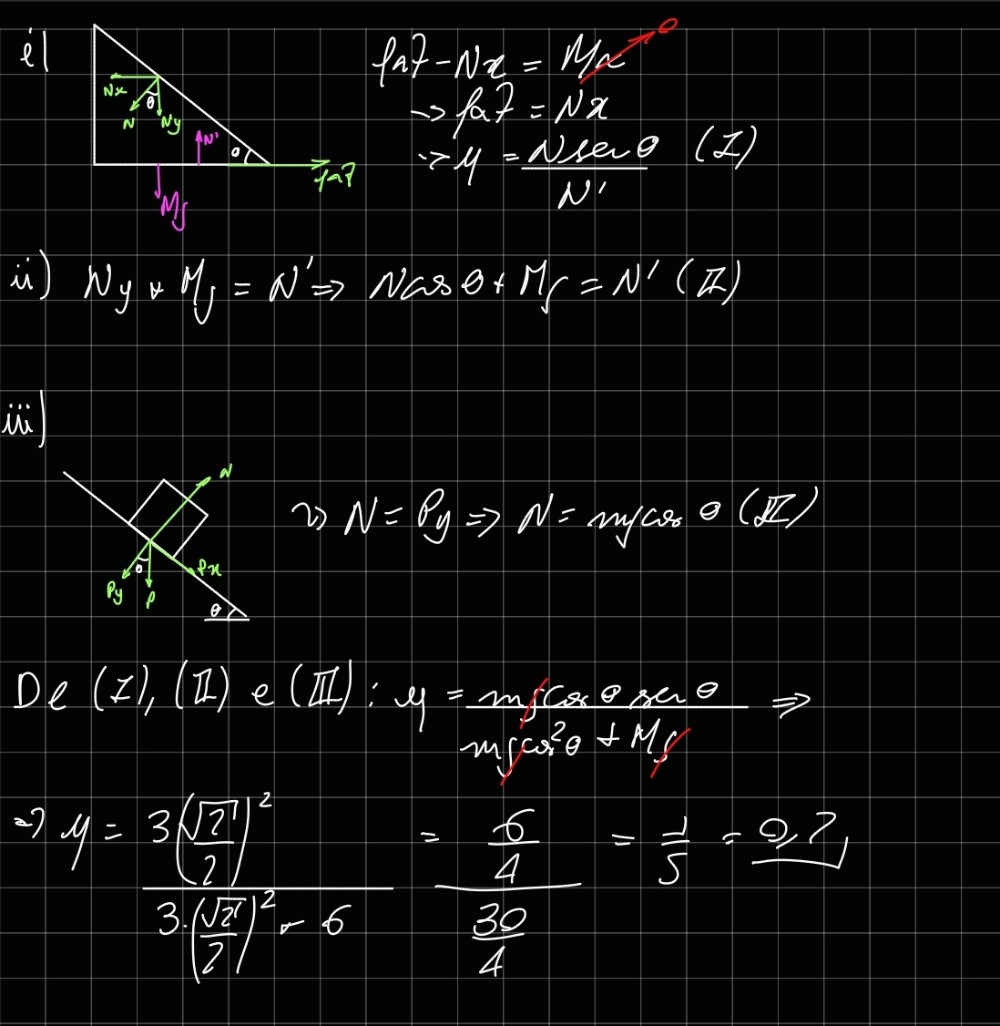 i)
Nx
θ
N
Ny
N'
θ
fat
Mg
fat - Nx = Ma 0
→ fat = Nx
→ μ = N sen θ / N' (I)
ii) Ny + Mg = N' ⇒ N cos θ + Mg = N' (II)
iii)
N
Px
θ
Py
P
θ
→ N = Py ⇒ N = mg cos θ (III)
De (I), (II) e (III): μ = mg cos θ sen θ / mg cos²θ + Mg ⇒
⇒ μ = 3(√2/2)² / 3·(√2/2)² + 6 = 6/4 / 30/4 = 1/5 = 0,2